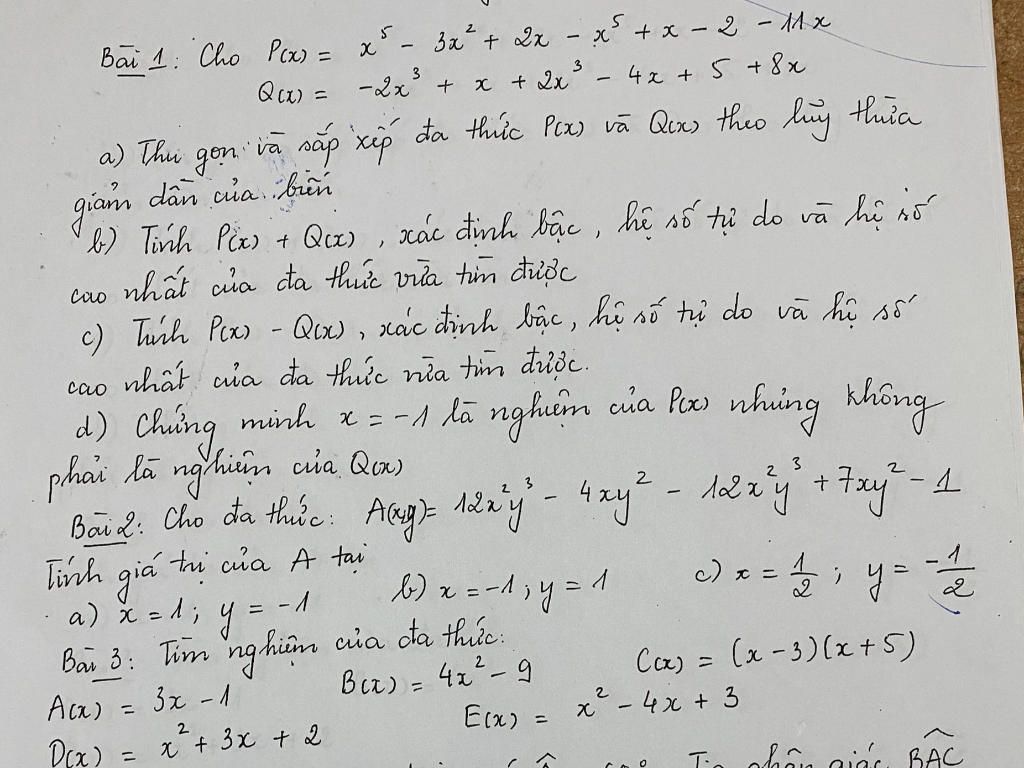 Bài 1: Cho P(x) = x⁵ - 3x² + 2x - x⁵ + x - 2 - 11x
Q(x) = -2x³ + x + 2x³ - 4x + 5 + 8x
a) Thu gọn và sắp xếp đa thức P(x) và Q(x) theo lũy thừa
giảm dần của biến
b) Tính P(x) + Q(x), xác định bậc, hệ số tự do và hệ số
cao nhất của đa thức vừa tìm được
c) Tính P(x) - Q(x), xác định bậc, hệ số tự do và hệ số
cao nhất của đa thức vừa tìm được.
d) Chứng minh x = -1 là nghiệm của P(x) nhưng không
phải là nghiệm của Q(x)
Bài 2: Cho đa thức: A(x,y) = 12x²y³ - 4xy² - 12x²y³ + 7xy² - 1
Tính giá trị của A tại
a) x = 1; y = -1 b) x = -1; y = 1 c) x = 1/2; y = -1/2
Bài 3: Tìm nghiệm của đa thức:
A(x) = 3x - 1 B(x) = 4x² - 9 C(x) = (x - 3)(x + 5)
D(x) = x² + 3x + 2 E(x) = x² - 4x + 3
Tia phân giác BAC